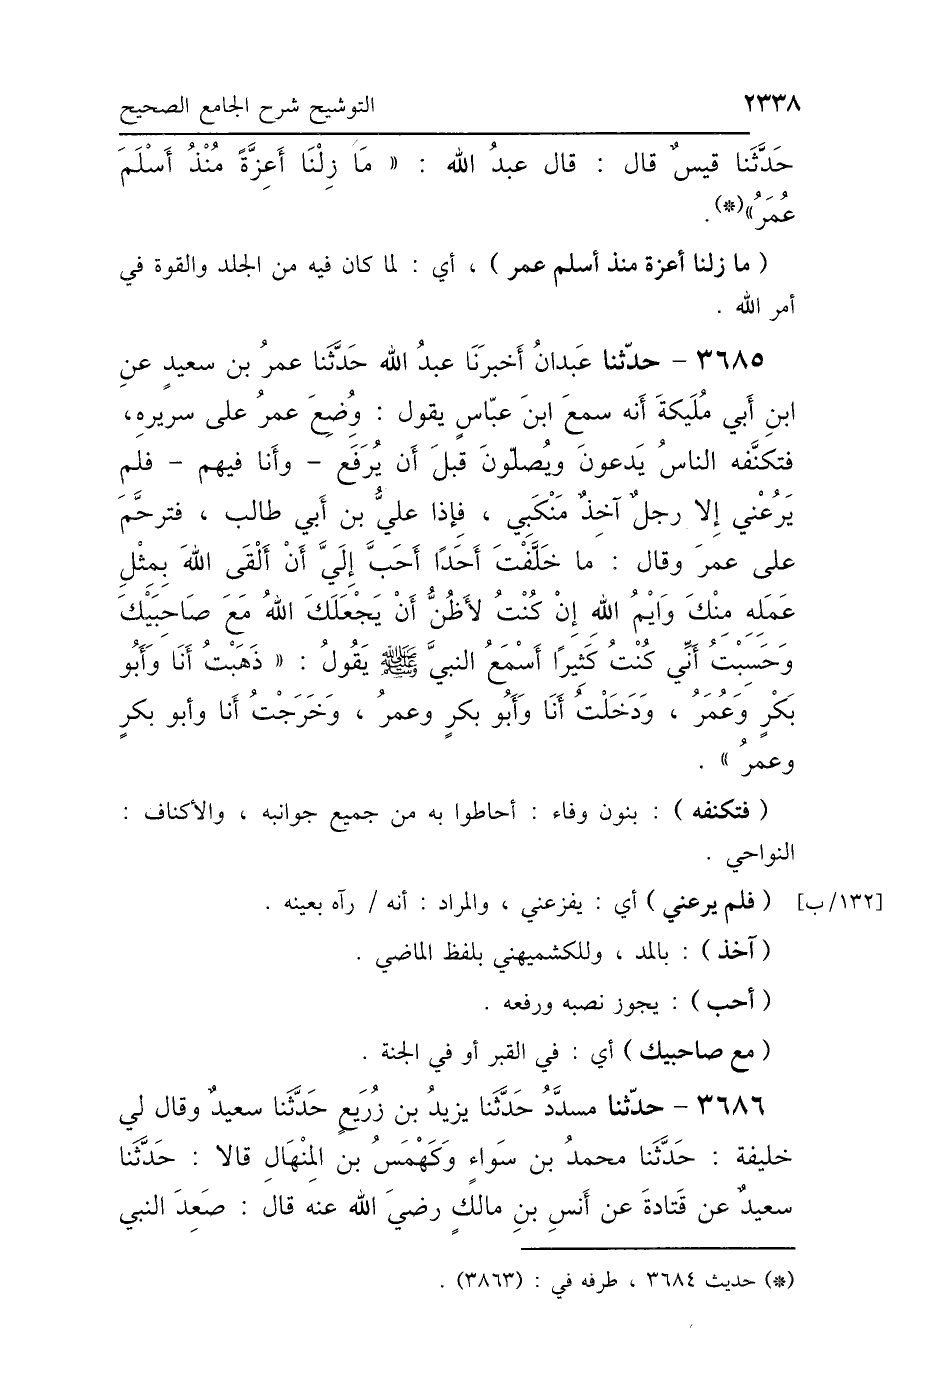 ٢٣٣٨ التوشيح شرح الجامع الصحيح
حَدَّثَنا قيسٌ قال : قال عبدُ الله : « مَا زِلْنَا أَعِزَّةً مُنْذُ أَسْلَمَ
عُمَرُ»(*).
( ما زلنا أعزة منذ أسلم عمر ) ، أي : لما كان فيه من الجلد والقوة في
أمر الله .
٣٦٨٥ - حدّثنا عَبدانُ أَخبرَنَا عبدُ الله حَدَّثَنا عمرُ بن سعيدٍ عنِ
ابنِ أَبي مُلَيكةَ أَنه سمعَ ابنَ عبّاسٍ يقول : وُضِعَ عمرُ على سريرهِ،
فتكنَّفه الناسُ يَدعونَ ويُصلّونَ قبلَ أَن يُرَفَع - وأَنا فيهم - فلم
يَرُعْني إلا رجلٌ آخِذٌ مَنْكبَي ، فإذا عليُّ بن أبي طالب ، فترحَّمَ
على عمرَ وقال : ما خَلَّفْتَ أَحَدًا أَحَبَّ إِلَيَّ أَنْ أَلْقَى اللهَ بِمِثْلِ
عَمَلِهِ مِنْكَ وَايْمُ الله إنْ كُنْتُ لأَظُنُّ أَنْ يَجْعَلَكَ اللهُ مَعَ صَاحِبَيْكَ
وَحَسِبْتُ أَنِّي كُنْتُ كَثِيرًا أَسْمَعُ النبيَّ ﷺ يَقُولُ : « ذَهَبْتُ أَنَا وَأَبُو
بَكْرٍ وَعُمَرُ ، وَدَخَلْتُ أَنَا وَأَبُو بكرٍ وعمرُ ، وَخَرَجْتُ أَنا وأبو بكرٍ
وعمرُ » .
( فتكنفه ) : بنون وفاء : أحاطوا به من جميع جوانبه ، والأكناف :
النواحي .
[١٣٢/ب] ( فلم يرعني ) أي : يفزعني ، والمراد : أنه / رآه بعينه .
( آخذ ) : بالمد ، وللكشميهني بلفظ الماضي .
( أحب ) : يجوز نصبه ورفعه .
( مع صاحبيك ) أي : في القبر أو في الجنة .
٣٦٨٦ - حدّثنا مسدَّدُ حَدَّثَنا يزيدُ بن زُرَيعٍ حَدَّثَنا سعيدٌ وقال لي
خليفة : حَدَّثَنا محمدُ بن سَواءٍ وَكَهْمَسُ بن المِنْهَالِ قالا : حَدَّثَنا
سعيدٌ عن قَتادةَ عن أَنسِ بنِ مالكٍ رضيَ الله عنه قال : صَعِدَ النبي
(*) حديث ٣٦٨٤ ، طرفه في : (٣٨٦٣) .